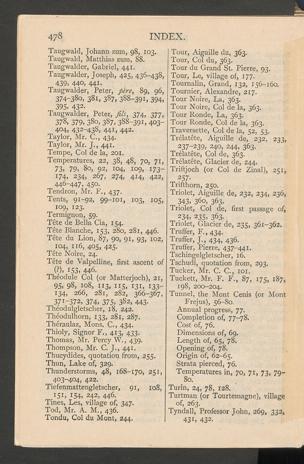 478
INDEX.
Taugwald, Johann zum, 98, 103.
Taugwald, Matthias zum, 88.
Taugwalder, Gabriel, 441.
Taugwalder, Joseph, 425, 436-438,
439, 440, 441.
Taugwalder, Peter, père, 89, 96,
374-380, 381, 387, 388-391, 394,
395, 432.
Taugwalder, Peter, fils, 374, 377,
378, 379, 380, 387, 388-391, 403-
404, 432-438, 441, 442.
Taylor, Mr. C., 434.
Taylor, Mr. J., 441.
Tempe, Col de la, 201.
Temperatures, 22, 38, 48, 70, 71,
73, 79, 80, 92, 104, 109, 173-
174, 234, 267, 274, 414, 422,
446-447, 450.
Tendron, Mr. F., 437.
Tents, 91-92, 99-101, 103, 105,
109, 123.
Termignon, 59.
Tête de Bella Cia, 154.
Tête Blanche, 153, 280, 281, 446.
Tête du Lion, 87, 90, 91, 93, 102,
104, 116, 405, 425.
Tête Noire, 24.
Tête de Valpelline, first ascent of
(?), 153, 446.
Théodule Col (or Matterjoch), 21,
95, 98, 108, 113, 115, 131, 133-
134, 266, 281, 282, 366-367,
371-372, 374, 375, 382, 443.
Théodulgletscher, 18, 242.
Théodulhorn, 133, 281, 287.
Théraulaz, Mons. C., 434.
Thioly, Signor F., 413, 433.
Thomas, Mr. Percy W., 439.
Thompson, Mr. C. J., 441.
Thucydides, quotation from, 255.
Thun, Lake of, 329.
Thunderstorms, 48, 168-170, 251,
403-404, 422.
Tiefenmattengletscher, 91, 108,
151, 154, 242, 446.
Tines, Les, village of, 347.
Tod, Mr. A. M., 436.
Tondu, Col du Mont, 244.
Tour, Aiguille du, 363.
Tour, Col du, 363.
Tour du Grand St. Pierre, 93.
Tour, Le, village of, 177.
Tournalin, Grand, 132, 156-160.
Tournier, Alexandre, 217.
Tour Noire, La, 363.
Tour Noire, Col de la, 363.
Tour Ronde, La, 363.
Tour Ronde, Col de la, 363.
Traversette, Col de la, 52, 53.
Trélatête, Aiguille de, 232, 233,
237-239, 240, 244, 363.
Trélatête, Col de, 363.
Trélatête, Glacier de, 244.
Triftjoch (or Col de Zinal), 251,
257.
Trifthorn, 250.
Triolet, Aiguille de, 232, 234, 236,
343, 360, 363.
Triolet, Col de, first passage of,
234, 235, 363.
Triolet, Glacier de, 235, 361-362.
Truffer, F., 434.
Truffer, J., 434, 436.
Truffer, Pierre, 437-441.
Tschingelgletscher, 16.
Tschudi, quotation from, 293.
Tucker, Mr. C. C., 101.
Tuckett, Mr. F. F., 87, 175, 187,
198, 200-204.
Tunnel, the Mont Cenis (or Mont
Frejus), 56-80.
Annual progress, 77.
Completion of, 77-78.
Cost of, 76.
Dimensions of, 69.
Length of, 65, 78.
Opening of, 78.
Origin of, 62-65.
Strata pierced, 76.
Temperatures in, 70, 71, 73, 79-
80.
Turin, 24, 78, 128.
Turtman (or Tourtemagne), village
of, 263.
Tyndall, Professor John, 269, 332,
431, 432.